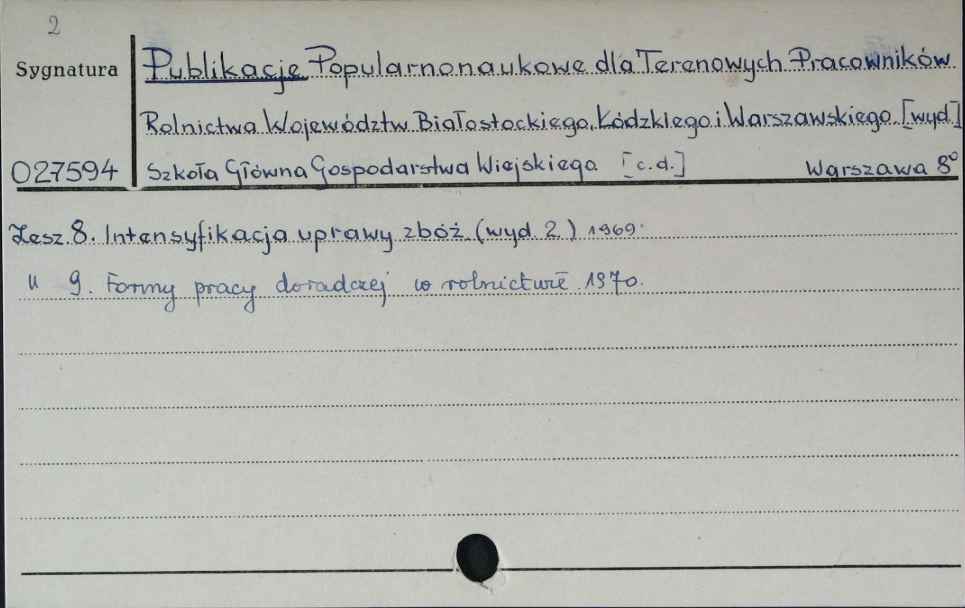 2
Sygnatura
Publikacje Popularnonaukowe dla Terenowych Pracowników
Rolnictwa Województw Białostockiego, Łódzkiego i Warszawskiego [wyd.]
027594 Szkoła Główna Gospodarstwa Wiejskiego [c.d.] Warszawa 8°
Zesz. 8. Intensyfikacja uprawy zbóż. (wyd. 2) 1969.
" 9. Formy pracy doradczej w rolnictwie 1970.